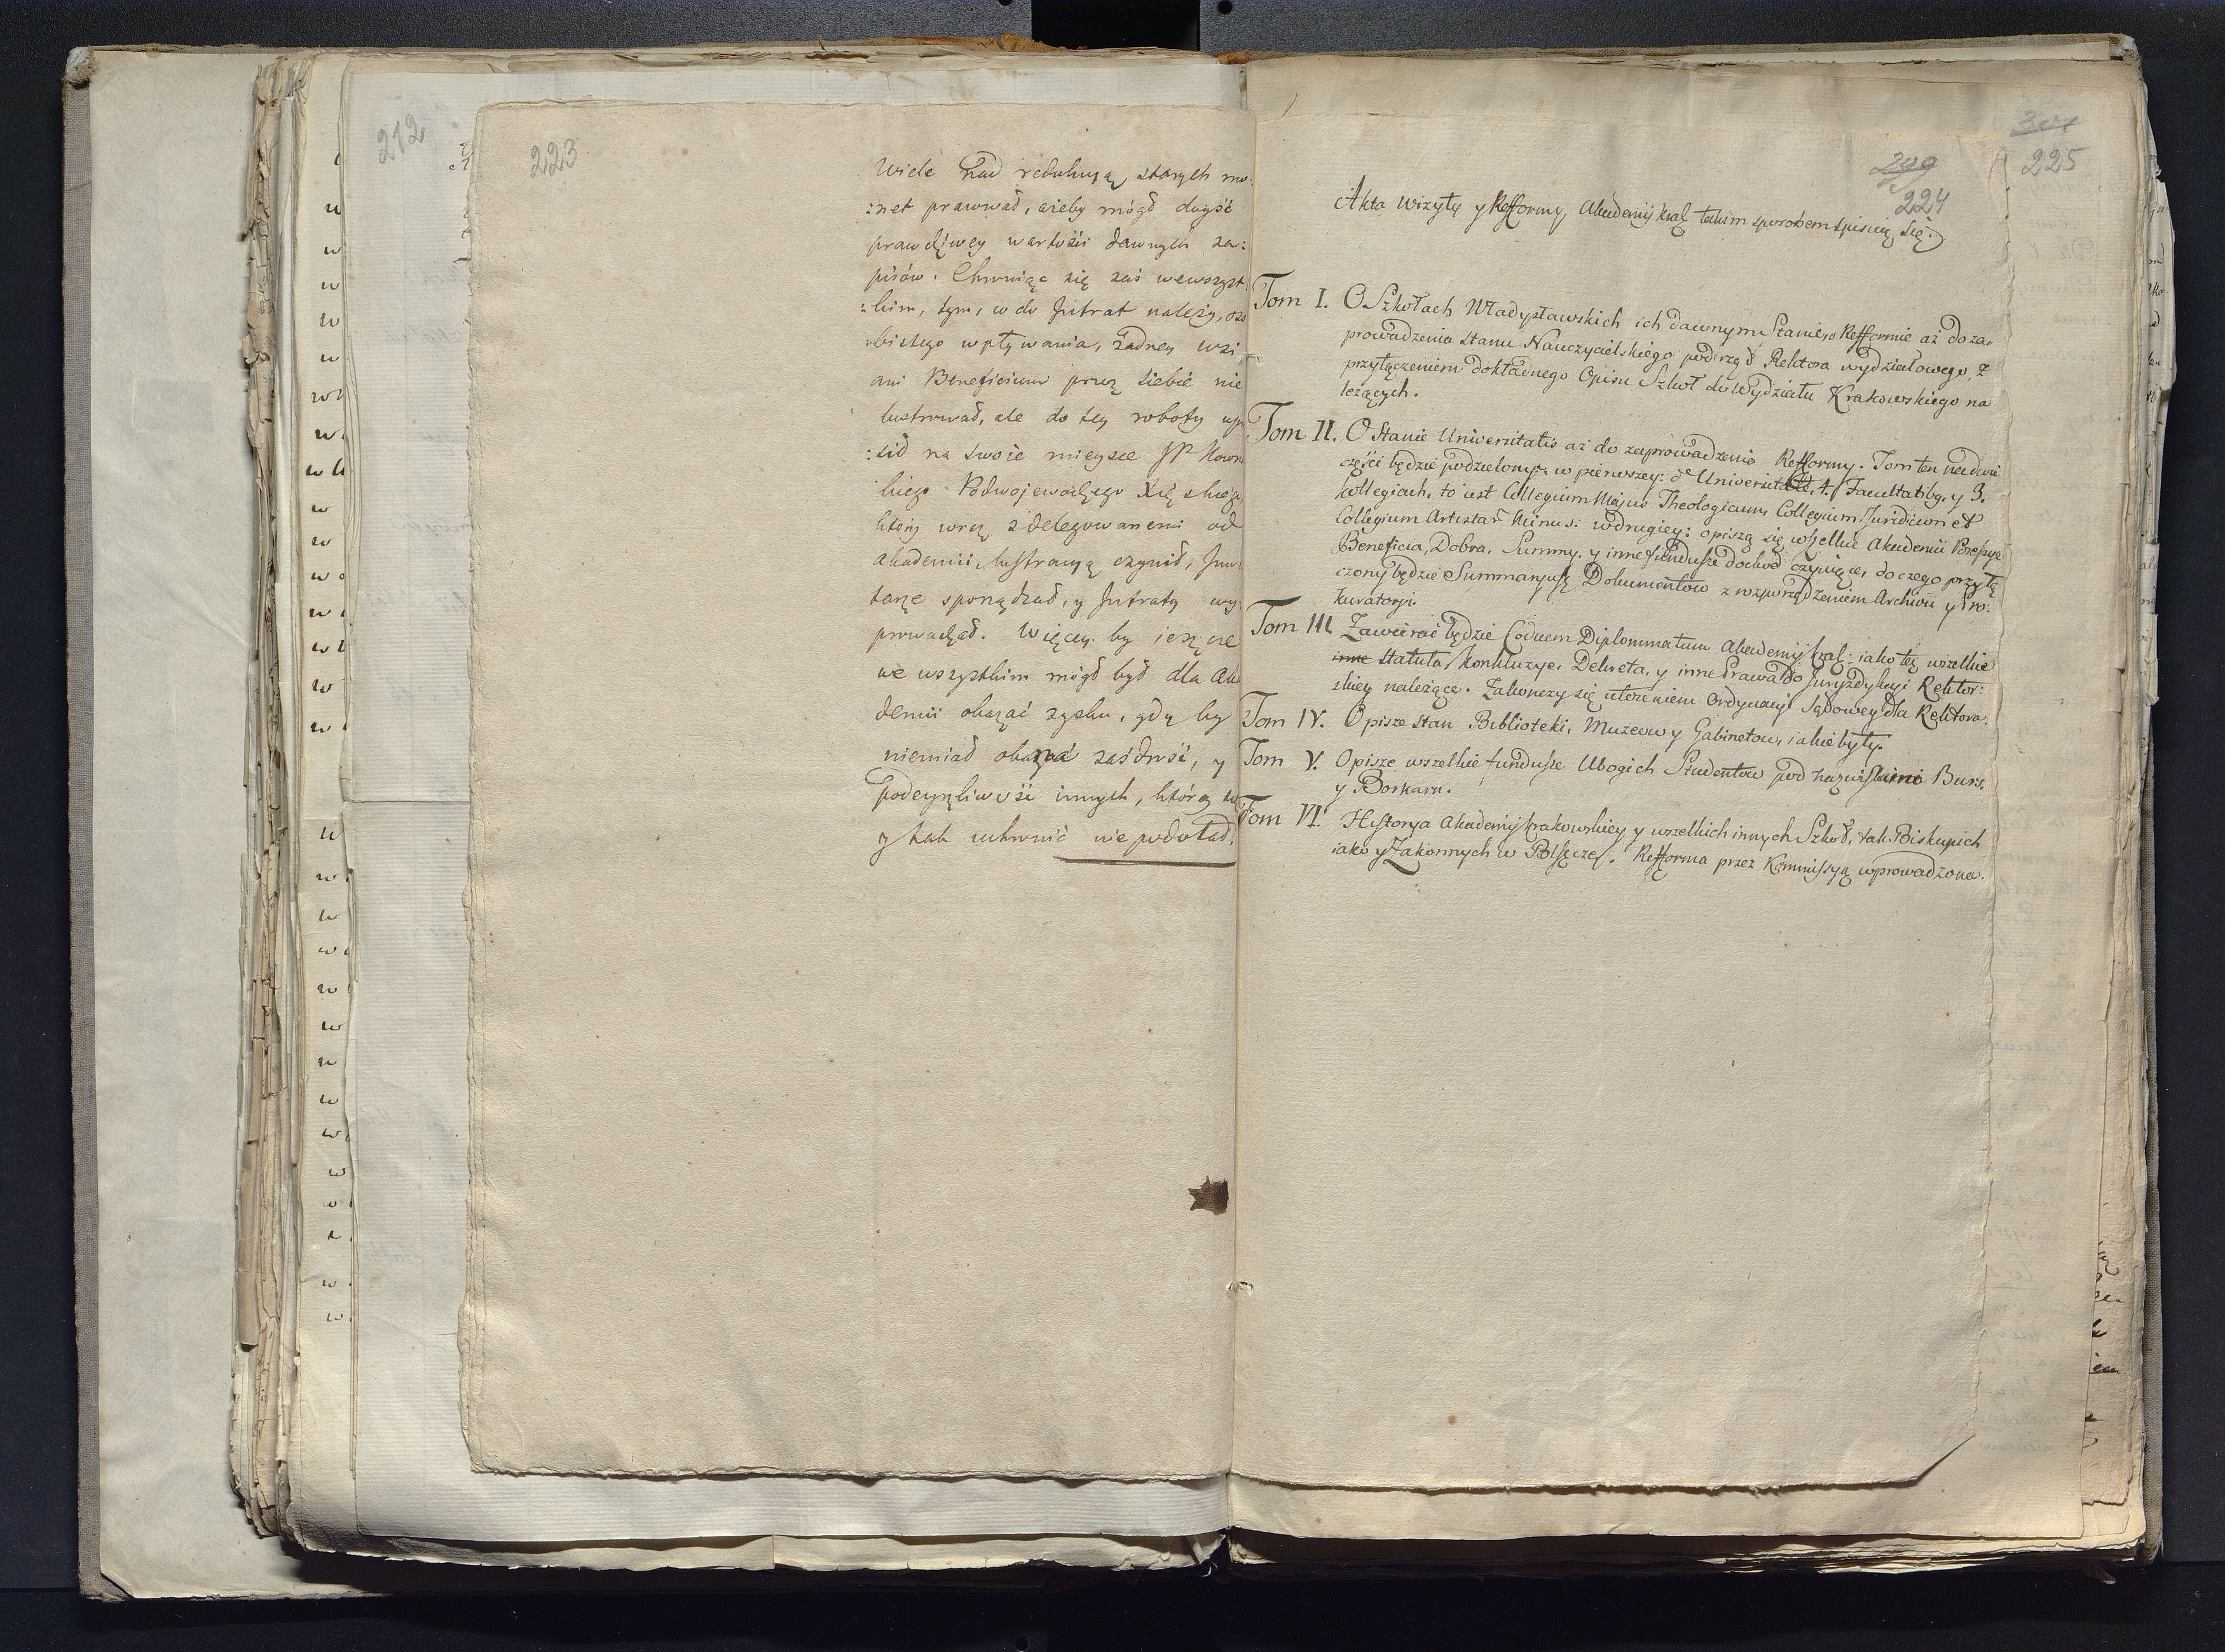 212
223
Wiele nad redukcyą starych mo:
:net pracował, ażeby mógł dojść
prawdziwey wartości dawnych za:
pisów. Chroniąc się zaś wewszyst:
:kim, tym, w do Jntrat należy, oso
:bistego wpływania, żadney wsi
ani Beneficium przez siebie nie
lustrował, ale do tey roboty up
:sił na swoie mieysce JP
:kiego Podwojewodzego Xię
który wraz z delegowanemi od
akademii, lustracyą czynił, Jnw
tarze sporządzał, y Jntraty wy:
prowadzał. Więcey by ieszcze
we wszystkim mógł był dla Aka
demii okazać zysku, gdy by
niemiał obazrać zazdrość, y
podeyrzliwość innych, którey się
y tak uchronić nie podołał.
299
224
301
225
Akta Wizyty y Refformy Akademij krak takim sposobem spisuią się.
Tom I. O Szkołach Władysławskich ich dawnym Stanie, o Refformie aż do za-
prowadzenia Stanu Nauczycielskiego pod rząd Rektora wydziałowego, z
przyłączeniem dokładnego Opisu Szkoł do Wydziału Krakowskiego na
leżących.
Tom II. O Stanie Universitatis aż do zaprowadzenia Refformy. Tom ten na dwie
części będzie podzielony: w pierwszey: de Universitate, 4. Facultatibq. y 3.
kollegiach, to iest Collegium Majus Theologicum, Collegium Juridicum et
Collegium Artistar Minus: w drugiey: opiszą się wszelkie Akademii Possessye
Beneficia, Dobra, Summy, y inne fundusze dochod czyniące, do czego przyłą
czony będzie Summaryusz Dokumentow z rozporządzeniem Archivii y Pro:
kuratorji.
Tom III Zawierać będzie Codicem Diplommatum Akademij krak: iako też wszelkie
inne Statuta, konkluzye, Dekreta, y inne Prawa do Juryzdykcyi Rektor:
skiey należące. Zakonczy się ułożeniem Ordynacyi Sądowey dla Rektora.
Tom IV. Opisze stan Biblioteki, Muzeow y Gabinetow, iakie były.
Tom V. Opisze wszelkie fundusze Ubogich Studentow pod nazwiskami Burs,
y Borkarn.
Tom VI. Historya Akademij krakowskiey y wszelkich innych Szkoł, tak Biskupich
iako y Zakonnych w Polszcze. Refforma przez Kommissyą wprowadzona.